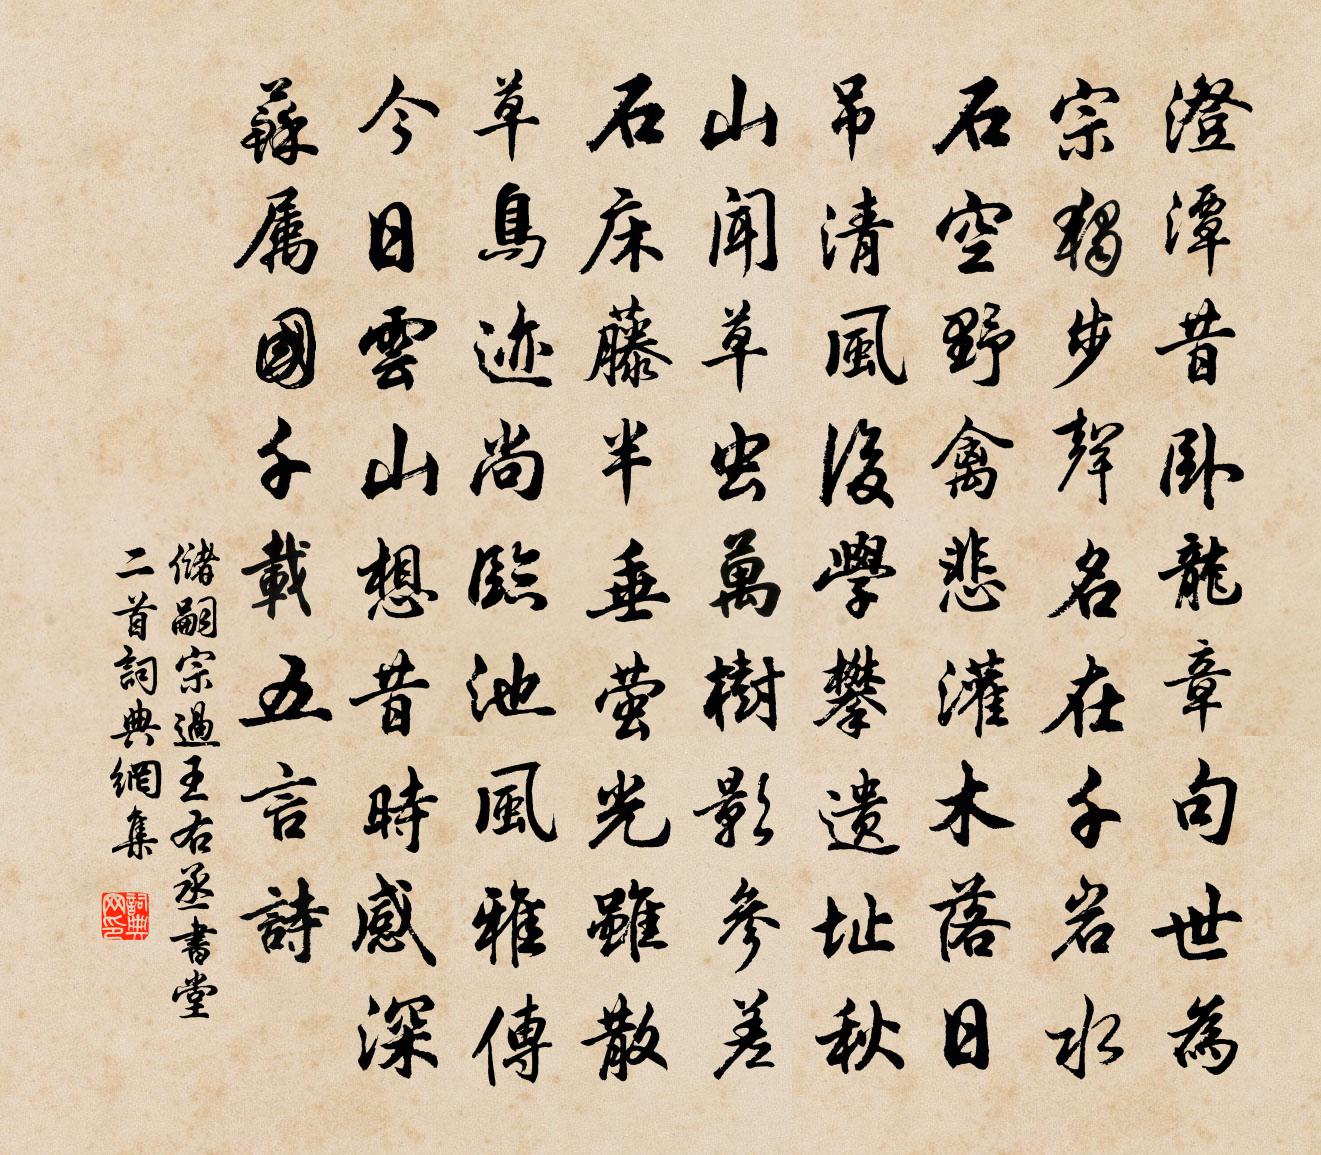 澄潭昔卧龍章句世為
宗獨步聲名在千岩水
石空野禽悲灌木落日
吊清風後學攀遺址秋
山聞草虫萬樹影參差
石床藤半垂萤光雖散
草鳥迹尚臨池風雅傳
今日雲山想昔時感深
蘇属國千載五言詩
儲嗣宗過王右丞書堂
二首詞典網集
詞典网印